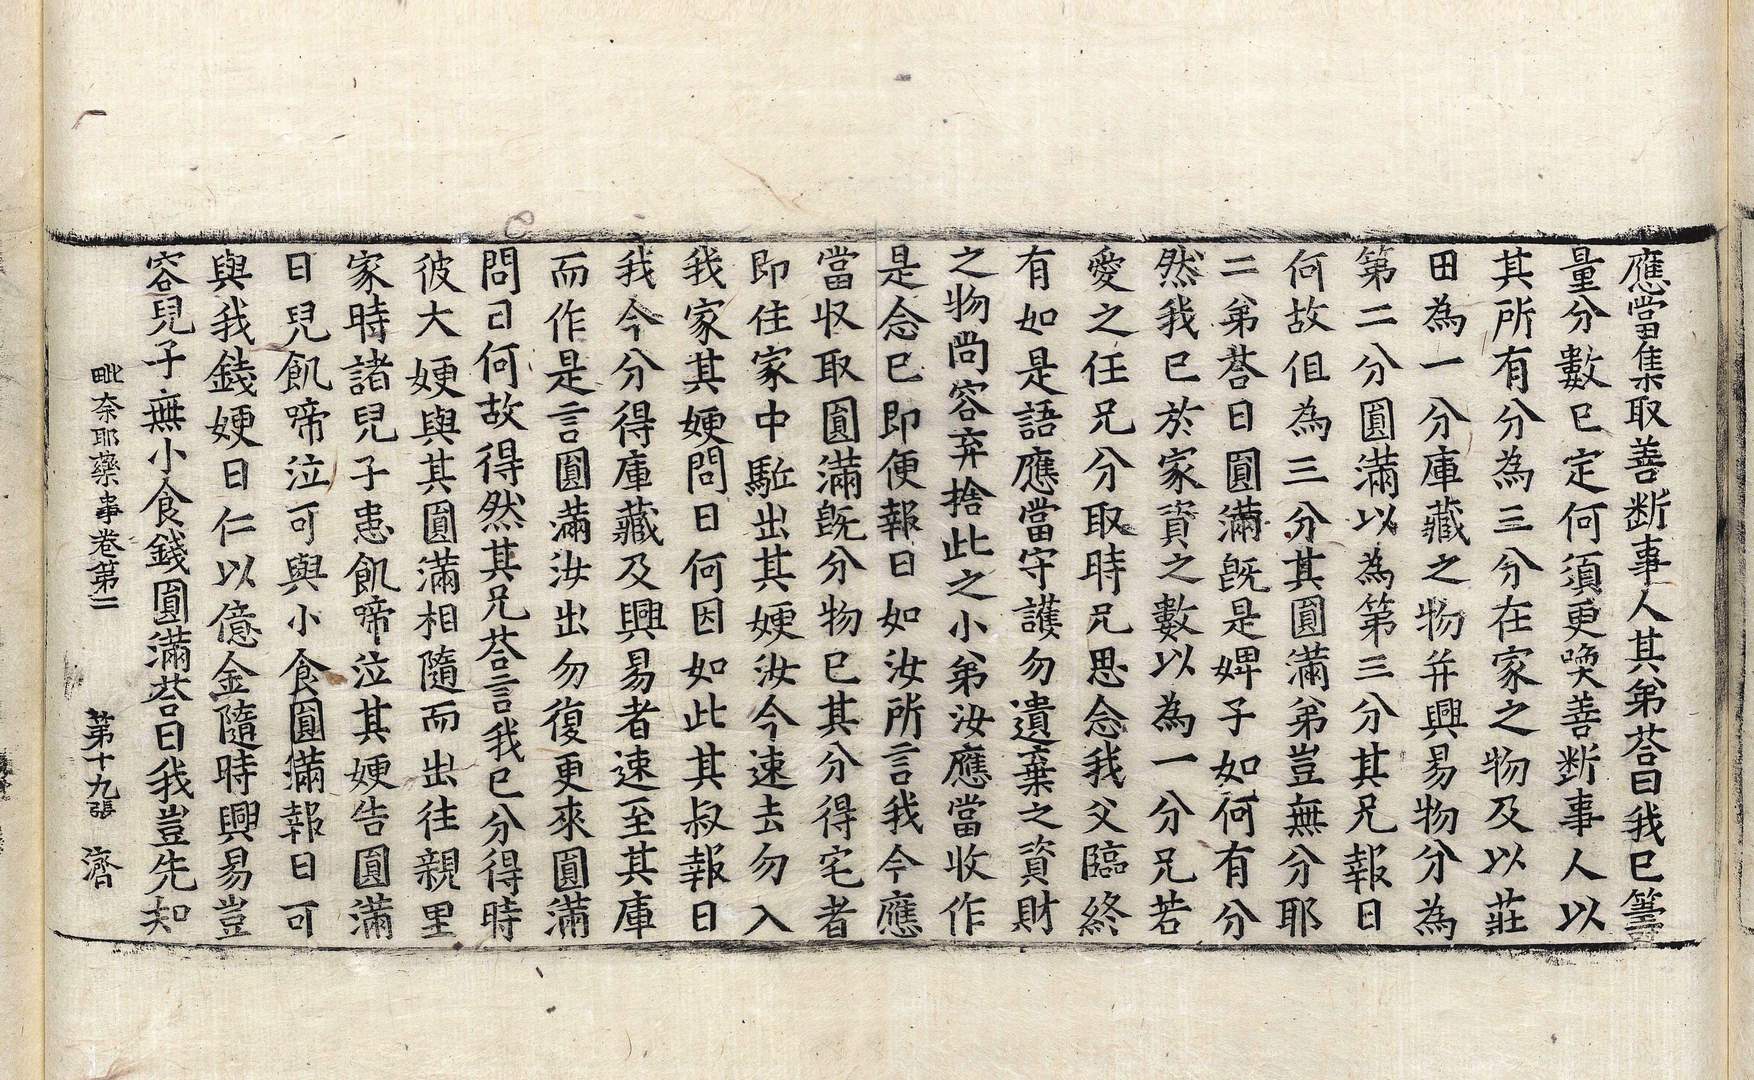 應當集取善斷事人其弟荅曰我已筭
量分數已定何須更喚善斷事人以
其所有分為三分在家之物及以莊
田為一分庫藏之物并興易物分為
第二分圓滿以為第三分其兄報曰
何故伹為三分其圓滿弟豈無分耶
二弟荅曰圓滿旣是婢子如何有分
然我已於家資之數以為一分兄若
愛之任兄分取時兄思念我父臨終
有如是語應當守護勿遺棄之資財
之物尚容弃捨此之小弟汝應當收作
是念已即便報曰如汝所言我今應
當収取圓滿旣分物已其分得宅者
即住家中駈出其㛐汝今速去勿入
我家其㛐問曰何因如此其叔報曰
我今分得庫藏及興易者速至其庫
而作是言圓滿汝出勿復更來圓滿
問曰何故得然其兄荅言我已分得時
彼大㛐與其圓滿相隨而出往親里
家時諸兒子患飢啼泣其㛐告圓滿
曰兒飢啼泣可與小食圓滿報曰可
與我錢㛐曰仁以億金隨時興易豈
容兒子無小食錢圓滿荅曰我豈先知
毗奈耶藥事卷第二 第十九張 濟